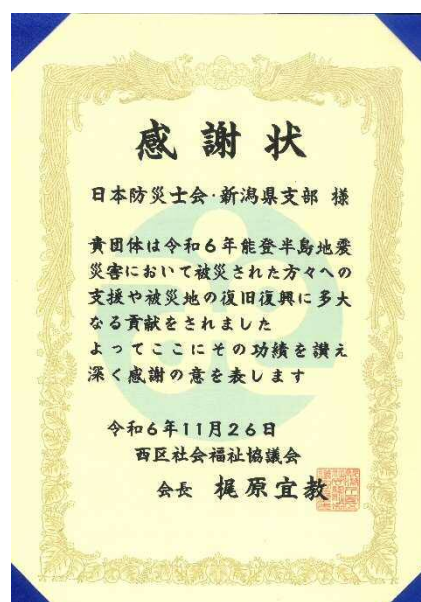 感謝状
日本防災士会・新潟県支部 様
貴団体は令和6年能登半島地震
災害において被災された方々への
支援や被災地の復旧復興に多大
なる貢献をされました
よってここにその功績を讃え
深く感謝の意を表します
令和6年11月26日
西区社会福祉協議会
会長 梶原宜教